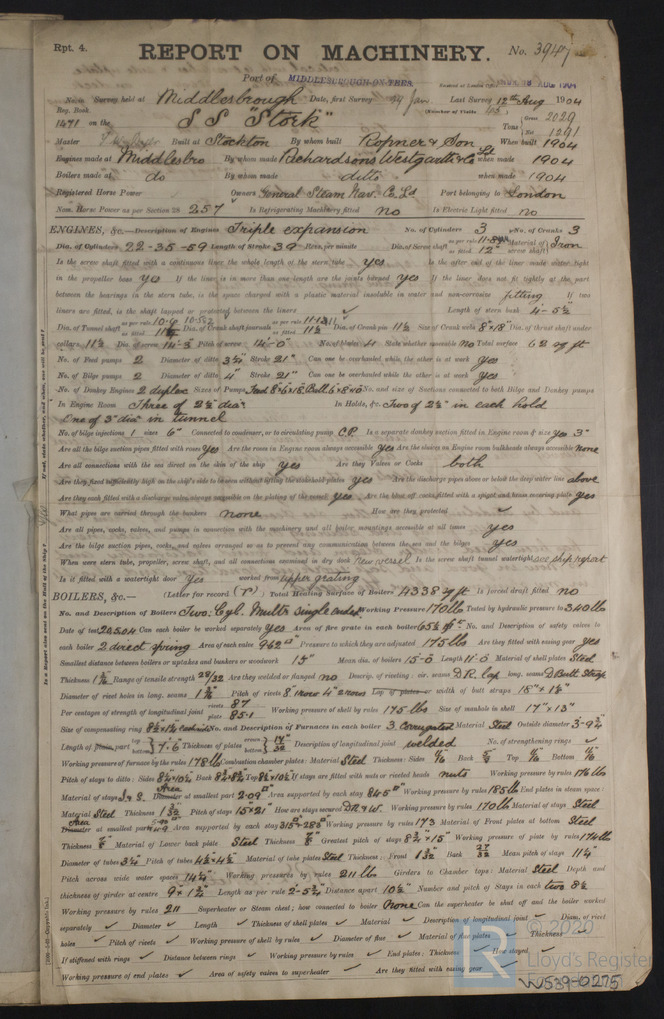 Rpt. 4.
REPORT ON MACHINERY. No. 3947
Port of MIDDLESBROUGH-ON-TEES
No. in Survey held at Middlesbrough Date, first Survey Jan Last Survey 12th Aug 1904
Reg. Book (Number of Visits 43)
1471 on the S S "Stork" Tons Gross 2029 Net 1241
Master Built at Stockton By whom built Ropner & Son When built 1904
Engines made at Middlesbro By whom made Richardsons Westgarth & Co Ld when made 1904
Boilers made at do By whom made ditto when made 1904
Registered Horse Power Owners General Steam Nav. Co. Ld Port belonging to London
Nom. Horse Power as per Section 28 257 Is Refrigerating Machinery fitted no Is Electric Light fitted no
ENGINES, &c.—Description of Engines Triple expansion No. of Cylinders 3 No. of Cranks 3
Dia. of Cylinders 22-35-59 Length of Stroke 39 Revs. per minute Dia. of Screw shaft as per rule as fitted 12" Material of screw shaft Iron
Is the screw shaft fitted with a continuous liner the whole length of the stern tube yes Is the after end of the liner made water tight
in the propeller boss yes If the liner is in more than one length are the joints burned yes If the liner does not fit tightly at the part
between the bearings in the stern tube, is the space charged with a plastic material insoluble in water and non-corrosive fitting If two
liners are fitted, is the shaft lapped or protected between the liners ✓ Length of stern bush 4-5½
Dia. of Tunnel shaft as per rule as fitted Dia. of Crank shaft journals as per rule as fitted 11½ Dia. of Crank pin 11½ Size of Crank webs 8"×18 Dia. of thrust shaft under
collars 11½ Dia. of screw 14-3 Pitch of screw 14-0 No. of blades 4 State whether moveable no Total surface 62 sq ft
No. of Feed pumps 2 Diameter of ditto 3¼" Stroke 21" Can one be overhauled while the other is at work yes
No. of Bilge pumps 2 Diameter of ditto 4" Stroke 21" Can one be overhauled while the other is at work yes
No. of Donkey Engines 2 duplex Sizes of Pumps No. and size of Suctions connected to both Bilge and Donkey pumps
In Engine Room Three of 2½ dia. In Holds, &c. Two of 2½ in each hold
One of 3" dia in tunnel
No. of bilge injections 1 sizes 6" Connected to condenser, or to circulating pump C.P. Is a separate donkey suction fitted in Engine room & size yes 3"
Are all the bilge suction pipes fitted with roses yes Are the roses in Engine room always accessible yes Are the sluices on Engine room bulkheads always accessible none
Are all connections with the sea direct on the skin of the ship yes Are they Valves or Cocks both
Are they fixed sufficiently high on the ship's side to be seen without lifting the stokehold plates yes Are the discharge pipes above or below the deep water line above
Are they each fitted with a discharge valve always accessible on the plating of the vessel yes Are the blow off cocks fitted with a spigot and brass covering plate yes
What pipes are carried through the bunkers none How are they protected ✓
Are all pipes, cocks, valves, and pumps in connection with the machinery and all boiler mountings accessible at all times yes
Are the bilge suction pipes, cocks, and valves arranged so as to prevent any communication between the sea and the bilges yes
When were stern tube, propeller, screw shaft, and all connections examined in dry dock new vessel Is the screw shaft tunnel watertight see ship report
Is it fitted with a watertight door yes worked from upper grating
BOILERS, &c.— (Letter for record (r)) Total Heating Surface of Boilers 4338 sq ft Is forced draft fitted no
No. and Description of Boilers Two. Cyl. Multr single ended Working Pressure 170 lb Tested by hydraulic pressure to 340 lb
Date of test 20.5.04 Can each boiler be worked separately yes Area of fire grate in each boiler 65½ ft² No. and Description of safety valves to
each boiler 2 direct spring Area of each valve 9.62 Pressure to which they are adjusted 175 lb Are they fitted with easing gear yes
Smallest distance between boilers or uptakes and bunkers or woodwork 15" Mean dia. of boilers 15-0 Length 11-0 Material of shell plates Steel
Thickness Range of tensile strength 28/32 Are they welded or flanged no Descrip. of riveting: cir. seams D R. lap long. seams D Butt Strap
Diameter of rivet holes in long. seams Pitch of rivets Lap of plates or width of butt straps
Per centages of strength of longitudinal joint rivets 87 plate 85.1 Working pressure of shell by rules 175 lb Size of manhole in shell 17"×13"
Size of compensating ring No. and Description of Furnaces in each boiler 3 corrugated Material Steel Outside diameter
Length of plain part top bottom 7-6 Thickness of plates Description of longitudinal joint welded No. of strengthening rings ✓
Working pressure of furnace by the rules 178 lb Combustion chamber plates: Material Steel Thickness: Sides Back Top Bottom
Pitch of stays to ditto: Sides Back Top If stays are fitted with nuts or riveted heads nuts Working pressure by rules 176 lb
Material of stays Area Diameter at smallest part 2.09 Area supported by each stay Working pressure by rules 185 lb End plates in steam space
Material Steel Thickness Pitch of stays 15×21" How are stays secured D R & W. Working pressure by rules 170 lb Material of stays Steel
Area Diameter at smallest part Area supported by each stay Working pressure by rules 173 Material of Front plates at bottom Steel
Thickness Material of Lower back plate Steel Thickness Greatest pitch of stays Working pressure of plate by rules 174 lb
Diameter of tubes 3¼ Pitch of tubes 4½×4½ Material of tube plates Steel Thickness: Front Back Mean pitch of stays 11¼
Pitch across wide water spaces 14¼" Working pressures by rules 211 lb Girders to Chamber tops: Material Steel Depth and
thickness of girder at centre Length as per rule Distance apart 10½ Number and pitch of Stays in each two 8½
Working pressure by rules 211 Superheater or Steam chest; how connected to boiler none Can the superheater be shut off and the boiler worked
separately ✓ Diameter ✓ Length Thickness of shell plates ✓ Material ✓ Description of longitudinal joint ✓ Diam. of rivet
holes ✓ Pitch of rivets ✓ Working pressure of shell by rules ✓ Diameter of flue ✓ Material of flue plates ✓ Thickness
If stiffened with rings ✓ Distance between rings ✓ Working pressure by rules ✓ End plates: Thickness ✓ How stayed ✓
Working pressure of end plates ✓ Area of safety valves to superheater ✓ Are they fitted with easing gear ✓
© 2020
Lloyd's Register
W539-0275